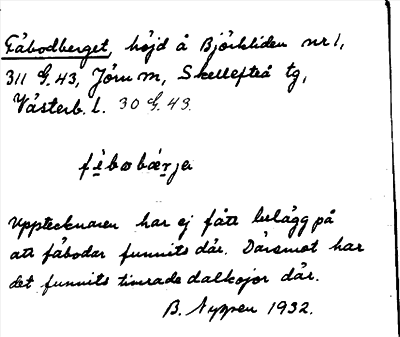 Fäbodberget, höjd å Björkliden nr 1,
311 G. 43, Jörn m, Skellefteå tg,
Västerb. l. 30 G. 43.
Upptecknaren har ej fått belägg på
att fäbodar funnits där. Däremot har
det funnits timrade dalkojor där.
B. Nyman 1932.